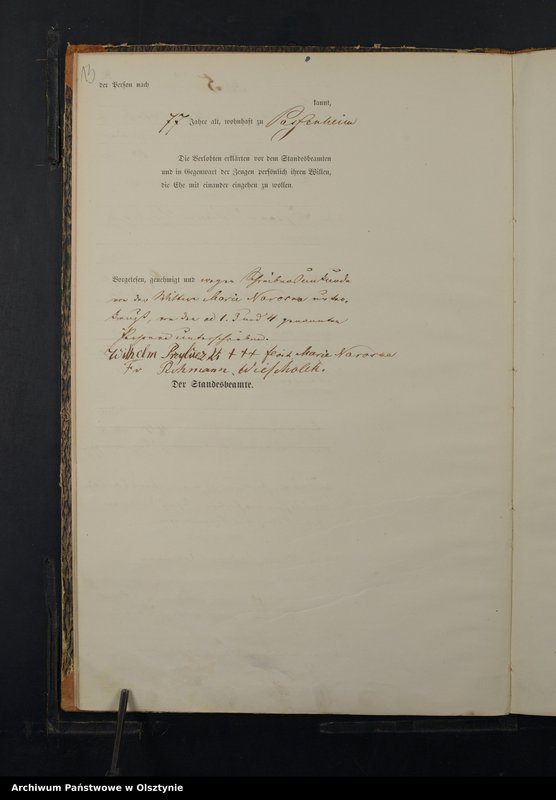 13
der Person nach
kannt,
77 Jahre alt, wohnhaft zu Passenheim
Die Verlobten erklärten vor dem Standesbeamten
und in Gegenwart der Zeugen persönlich ihren Willen,
die Ehe mit einander eingehen zu wollen.
Vorgelesen, genehmigt und wegen Schreibensunkunde
von der Wittwe Marie unter-
kreuzt, von den ad 1. 3 und 4 genannten
Personen unterschrieben.
Wilhelm +++ Marie
Fr
Der Standesbeamte.
Archiwum Państwowe w Olsztynie